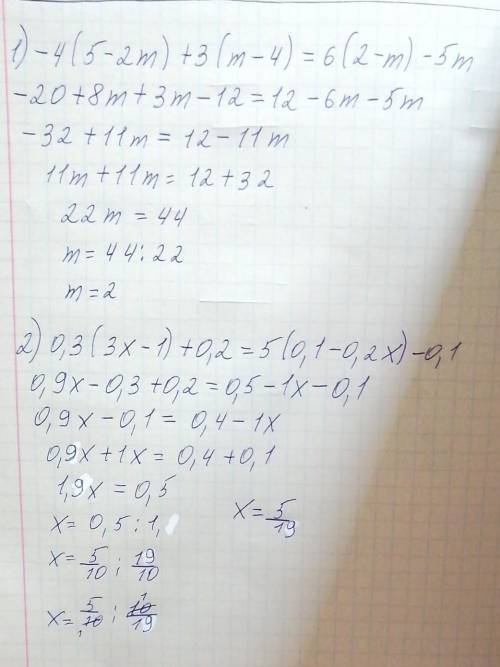 1) -4(5-2m)+3(m-4)=6(2-m)-5m
-20+8m+3m-12=12-6m-5m
-32+11m=12-11m
11m+11m=12+32
22m=44
m=44:22
m=2
2) 0,3(3x-1)+0,2=5(0,1-0,2x)-0,1
0,9x-0,3+0,2=0,5-1x-0,1
0,9x-0,1=0,4-1x
0,9x+1x=0,4+0,1
1,9x=0,5
x=0,5:1,
x=5/10:19/10
x=5/10:10/19
1 1
x=5/19